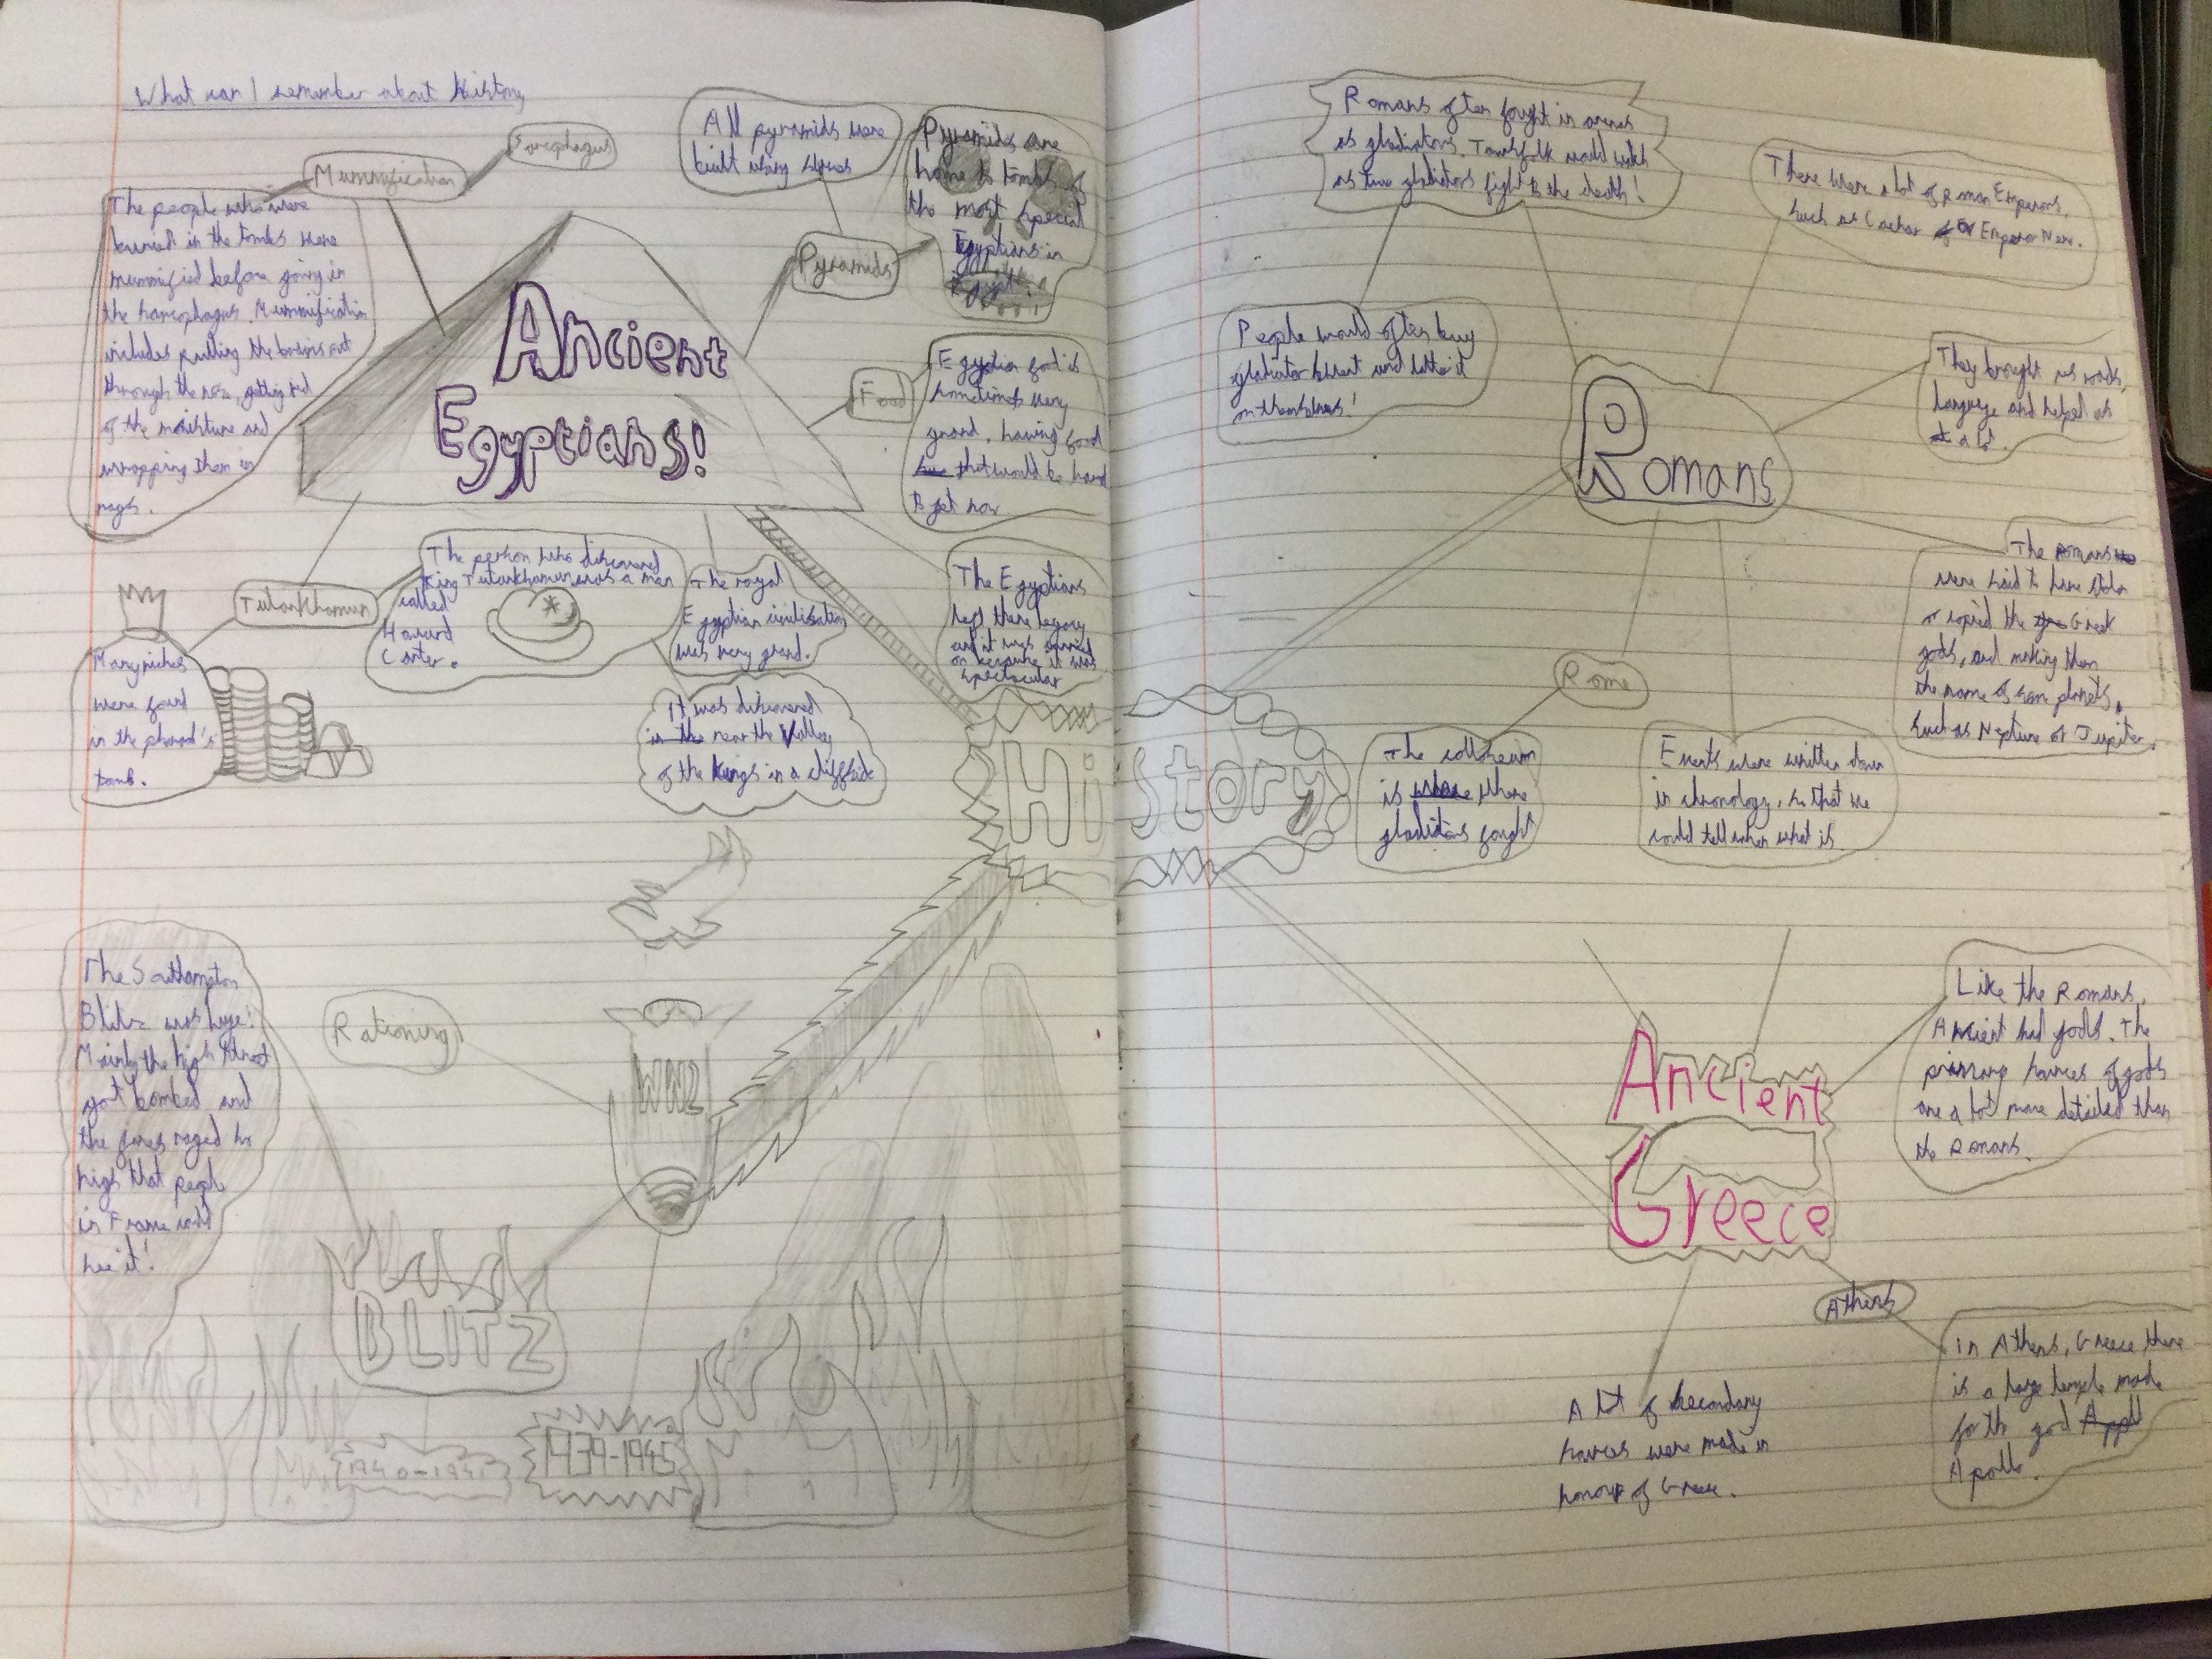 What can I remember about History
Sarcophagus
Mummification
The people who were
buried in the tombs were
mummified before going in
the sarcophagus. Mummification
includes pulling the brains out
through the nose, getting rid
of the moisture and
wrapping them in
rags.
All pyramids were
built using slaves
Pyramids are
home to tombs of
the most special
Egyptians in
Egypt.
Pyramids
Ancient
Egyptians!
Food
Egyptian food is
sometimes very
grand, having food
that would be hard
to get now
Tutankhamun
The person who discovered
King Tutankhamun was a man
called
Howard
Carter.
The royal
Egyptian civilisation
was very grand.
The Egyptians
left there legacy
and it was carried
on because it was
spectacular
Many riches
were found
in the pharaoh's
tomb.
It was discovered
in the near the Valley
of the Kings in a cliffside
History
The Southampton
Blitz was huge!
Mainly the high street
got bombed and
the fires raged so
high that people
in France could
see it!
Rationing
WW2
BLITZ
1940-1941
1939-1945
Romans often fought in arenas
as gladiators. Townsfolk would watch
as two gladiators fight to the death!
There were a lot of Roman Emperors,
such as or Emperor Nero.
People would often buy
gladiator sweat and lather it
on themselves!
They brought us roads,
language and helped us
a lot.
Romans
The Romans
were said to have stolen
or copied the Greek
gods, and making them
the name of some planets,
such as Neptune or Jupiter.
Rome
The colloseum
is where
gladiators fought
Events were written down
in chronology, so that we
could tell when what is
Ancient
Greece
Like the Romans,
Ancient had gods. The
of gods
are a lot more detailed than
the Romans.
Athens
In Athens, Greece there
is a large temple made
for the god Appll
Apollo.
A lot of secondary
were made in
honour of Greece.